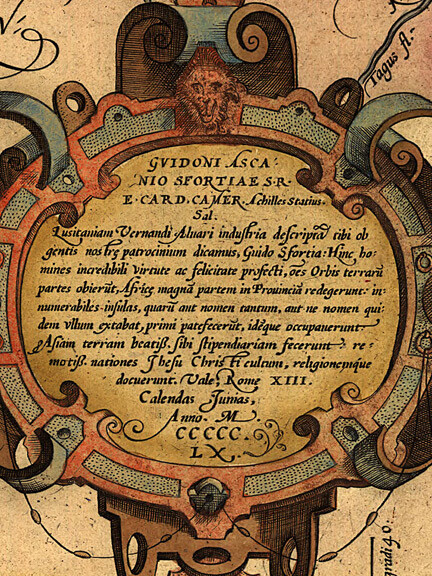 Tagus fl.
GVIDONI ASCA
NIO SFORTIAE S·R·
E·CARD·CAMER· Achilles Statius·
Sal·
Lusitaniam Vernandi Aluari industria descriptā tibi ob
gentis nostrę patrocinium dicamus, Guido Sfortia: Hinc ho-
mines incredibili virtute ac felicitate profecti, oēs Orbis terrarū
partes obierūt, Africę magnā partem in Prouinciā redegerunt: in-
numerabiles insulas, quarū aut nomen tantum, aut ne nomen qui
dem vllum extabat, primi patefecerūt, idēque occupauerunt
Asiam terram beatiss. sibi stipendiariam fecerunt re-
motiss. nationes Jhesu Christi cultum, religionemque
docuerunt. Vale, Romę XIII.
Calendas Junias,
Anno· M
CCCCC
LX.
gradi 40